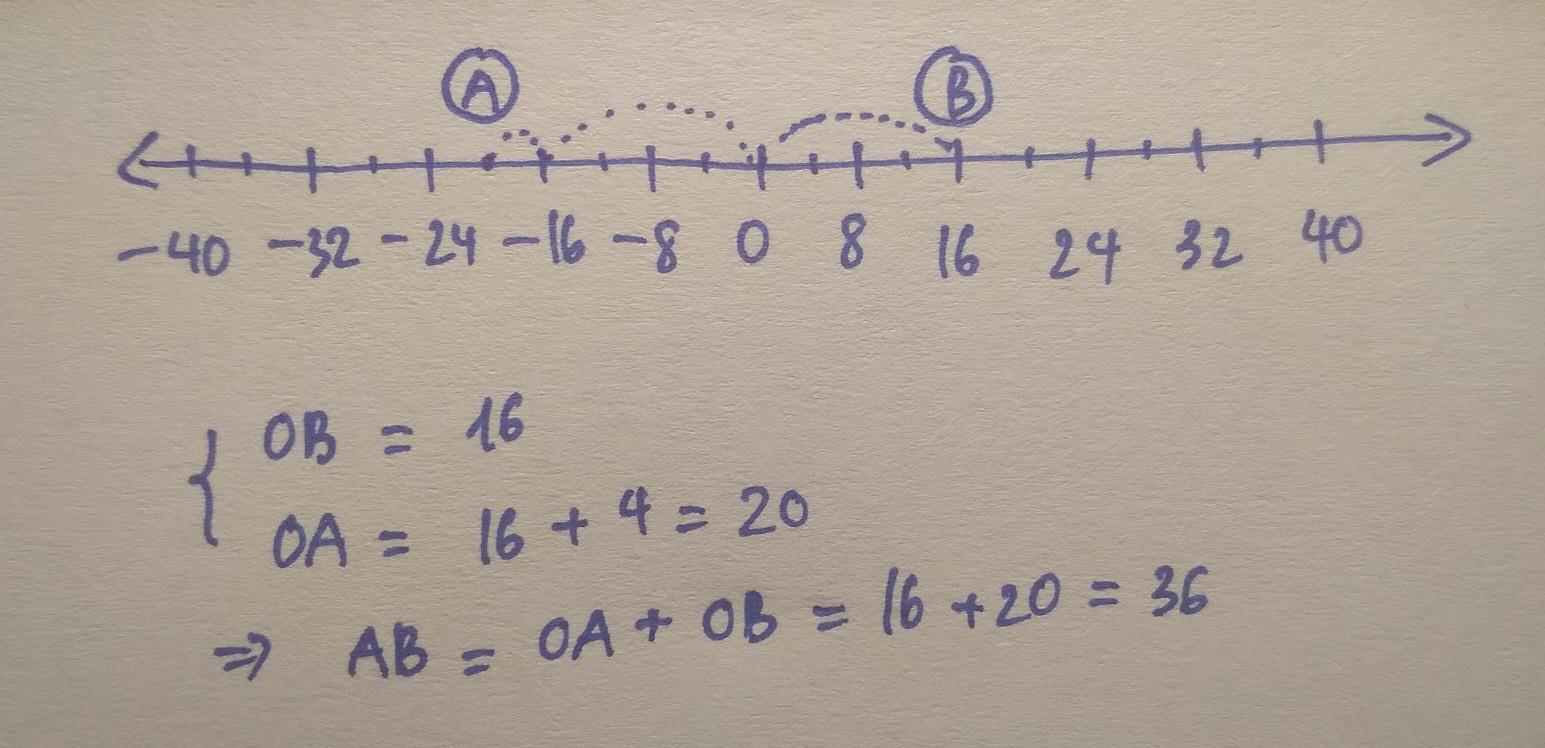 A B
-40 -32 -24 -16 -8 0 8 16 24 32 40
{ OB = 16
OA = 16 + 4 = 20
⇒ AB = OA + OB = 16 + 20 = 36